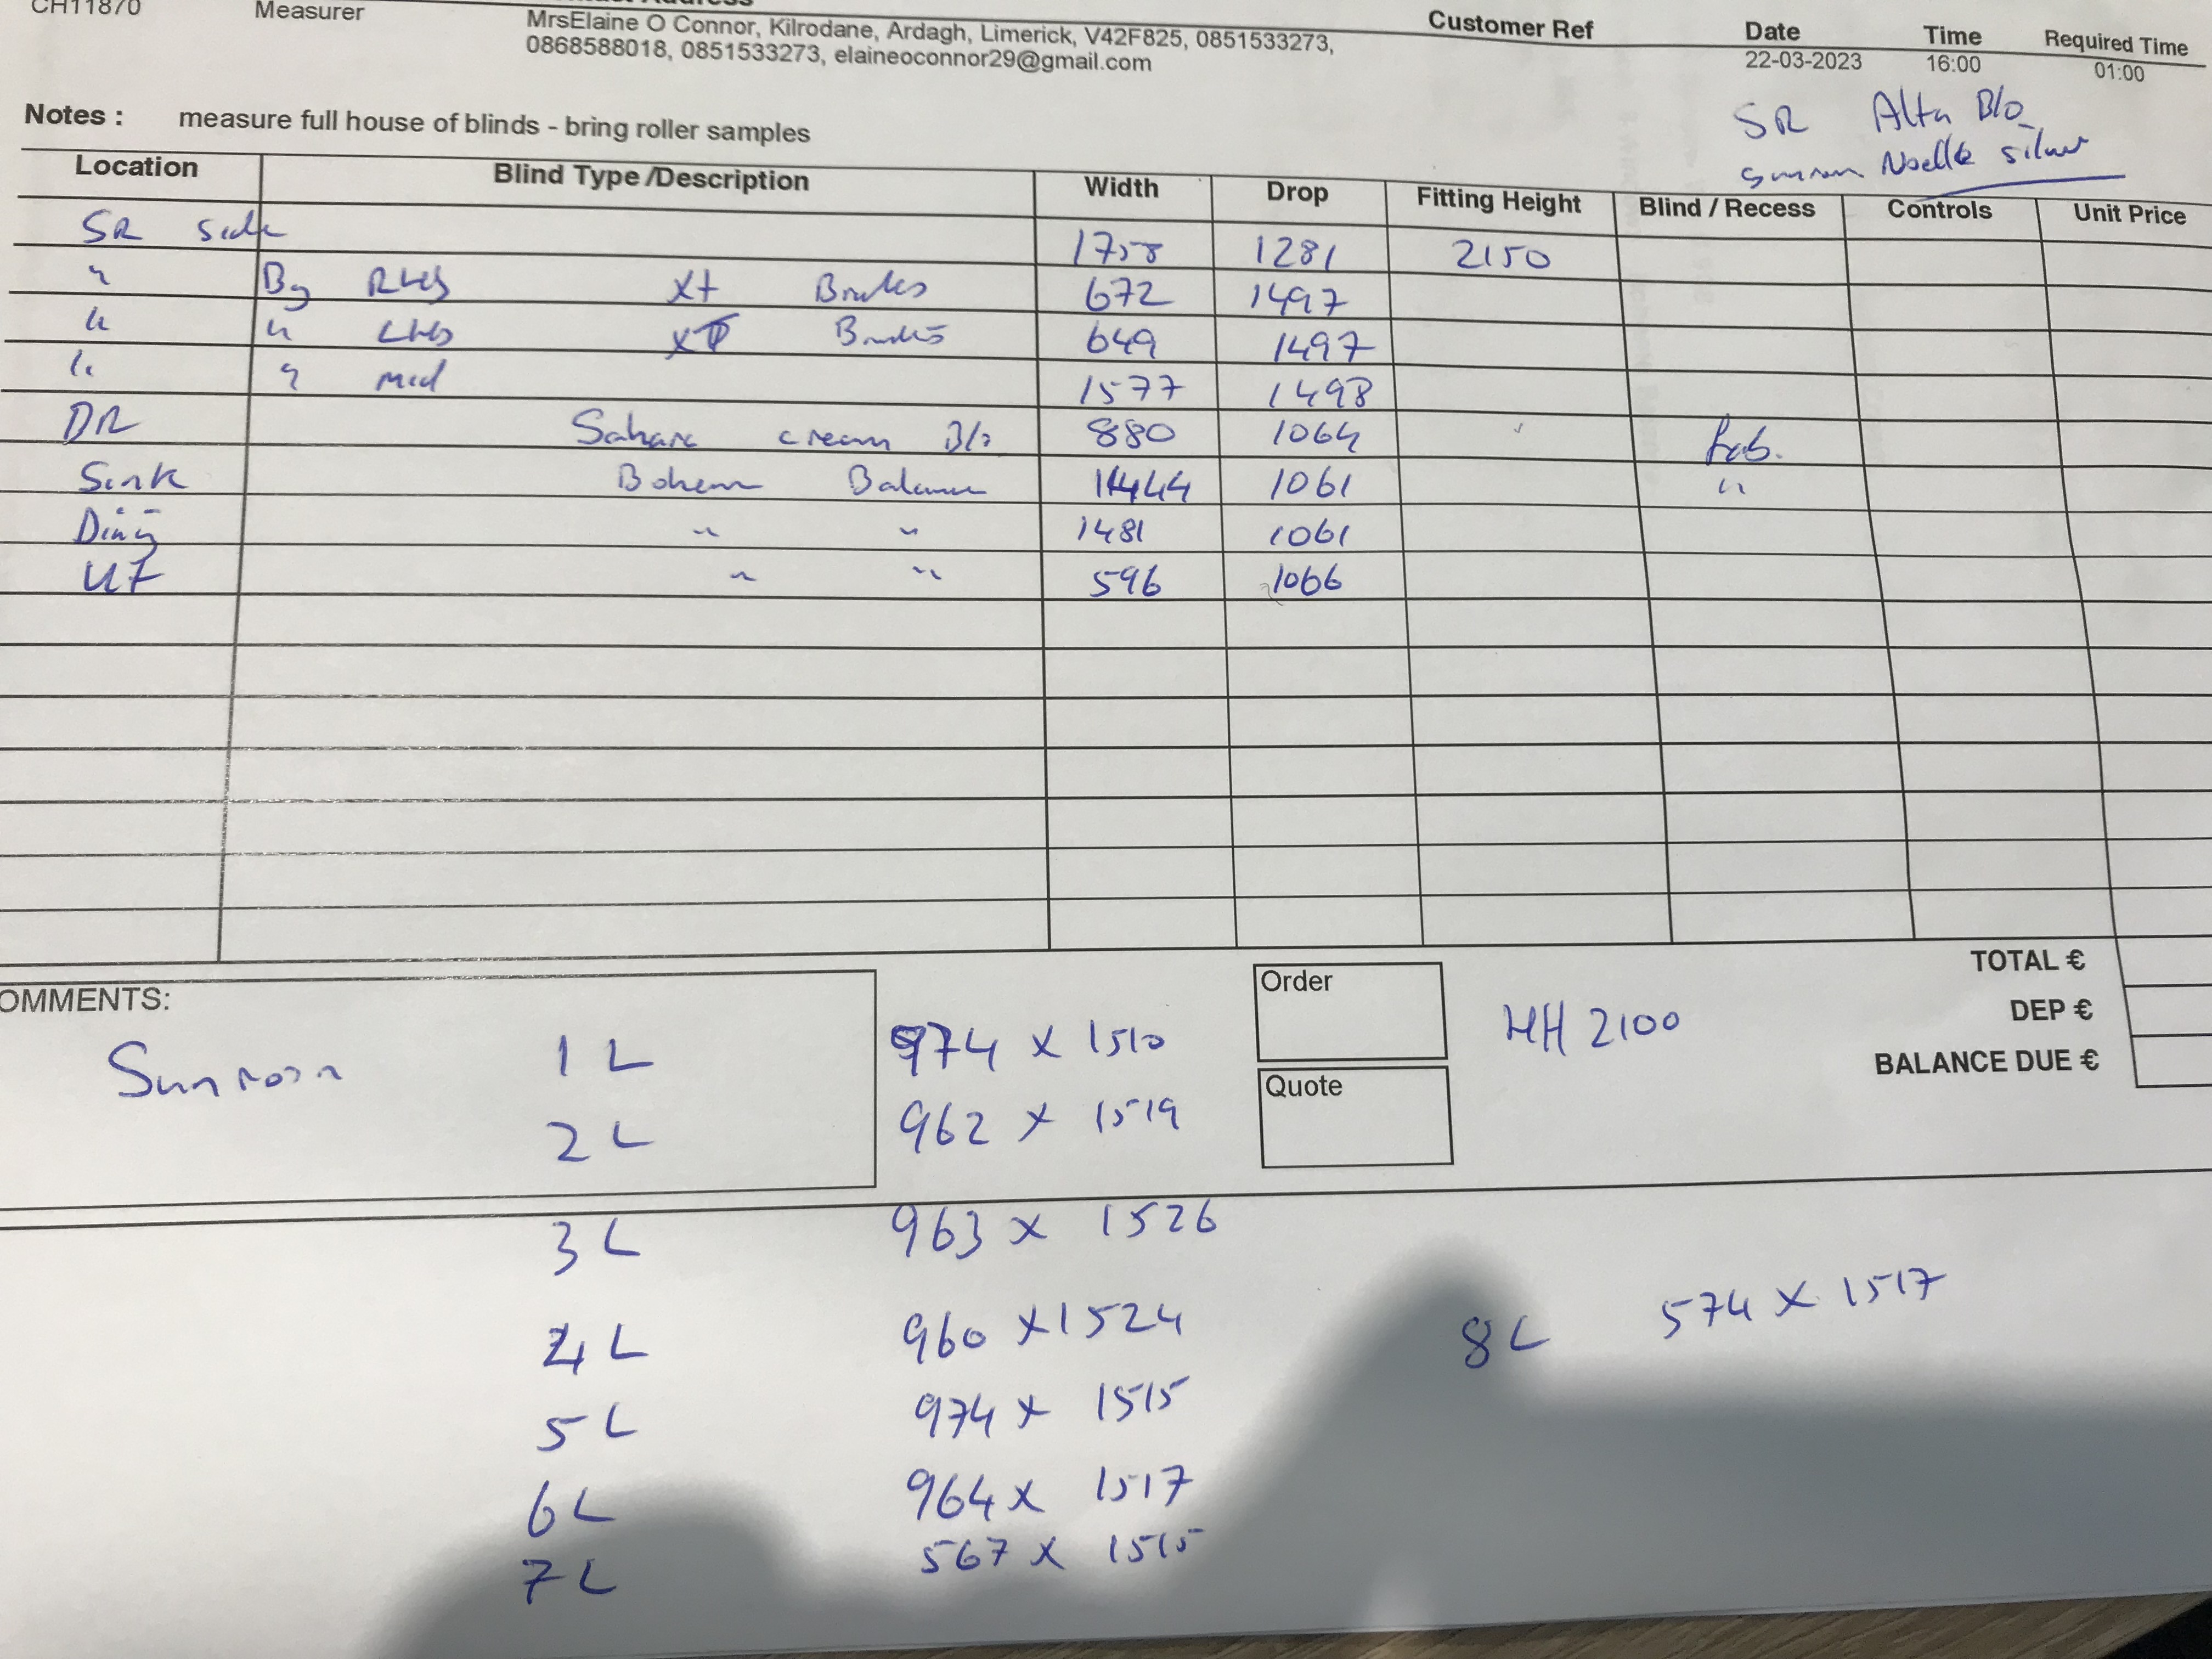 CH11870 Measurer
MrsElaine O Connor, Kilrodane, Ardagh, Limerick, V42F825, 0851533273,
0868588018, 0851533273, elaineoconnor29@gmail.com
Customer Ref Date Time Required Time
22-03-2023 16:00 01:00
Notes : measure full house of blinds - bring roller samples
SR Alta B/o
Noelle silver
Location Blind Type /Description Width Drop Fitting Height Blind / Recess Controls Unit Price
SR side 1758 1281 2150
" Bay RHS x+ 672 1497
" " LHS 649 1497
" " mid 1577 1498
DR Sahara cream B/o 880 1064 Fab.
Sink 1444 1061 "
Dining " " 1481 1061
UF " " 596 1066
TOTAL €
DEP €
BALANCE DUE €
OMMENTS:
Order
Quote
HH 2100
Sunroom 1 L 974 x 1510
2 L 962 x 1519
3 L 963 x 1526
4 L 960 x 1524
5 L 974 x 1515
6 L 964 x 1517
7 L 567 x 1515
8 L 574 x 1517